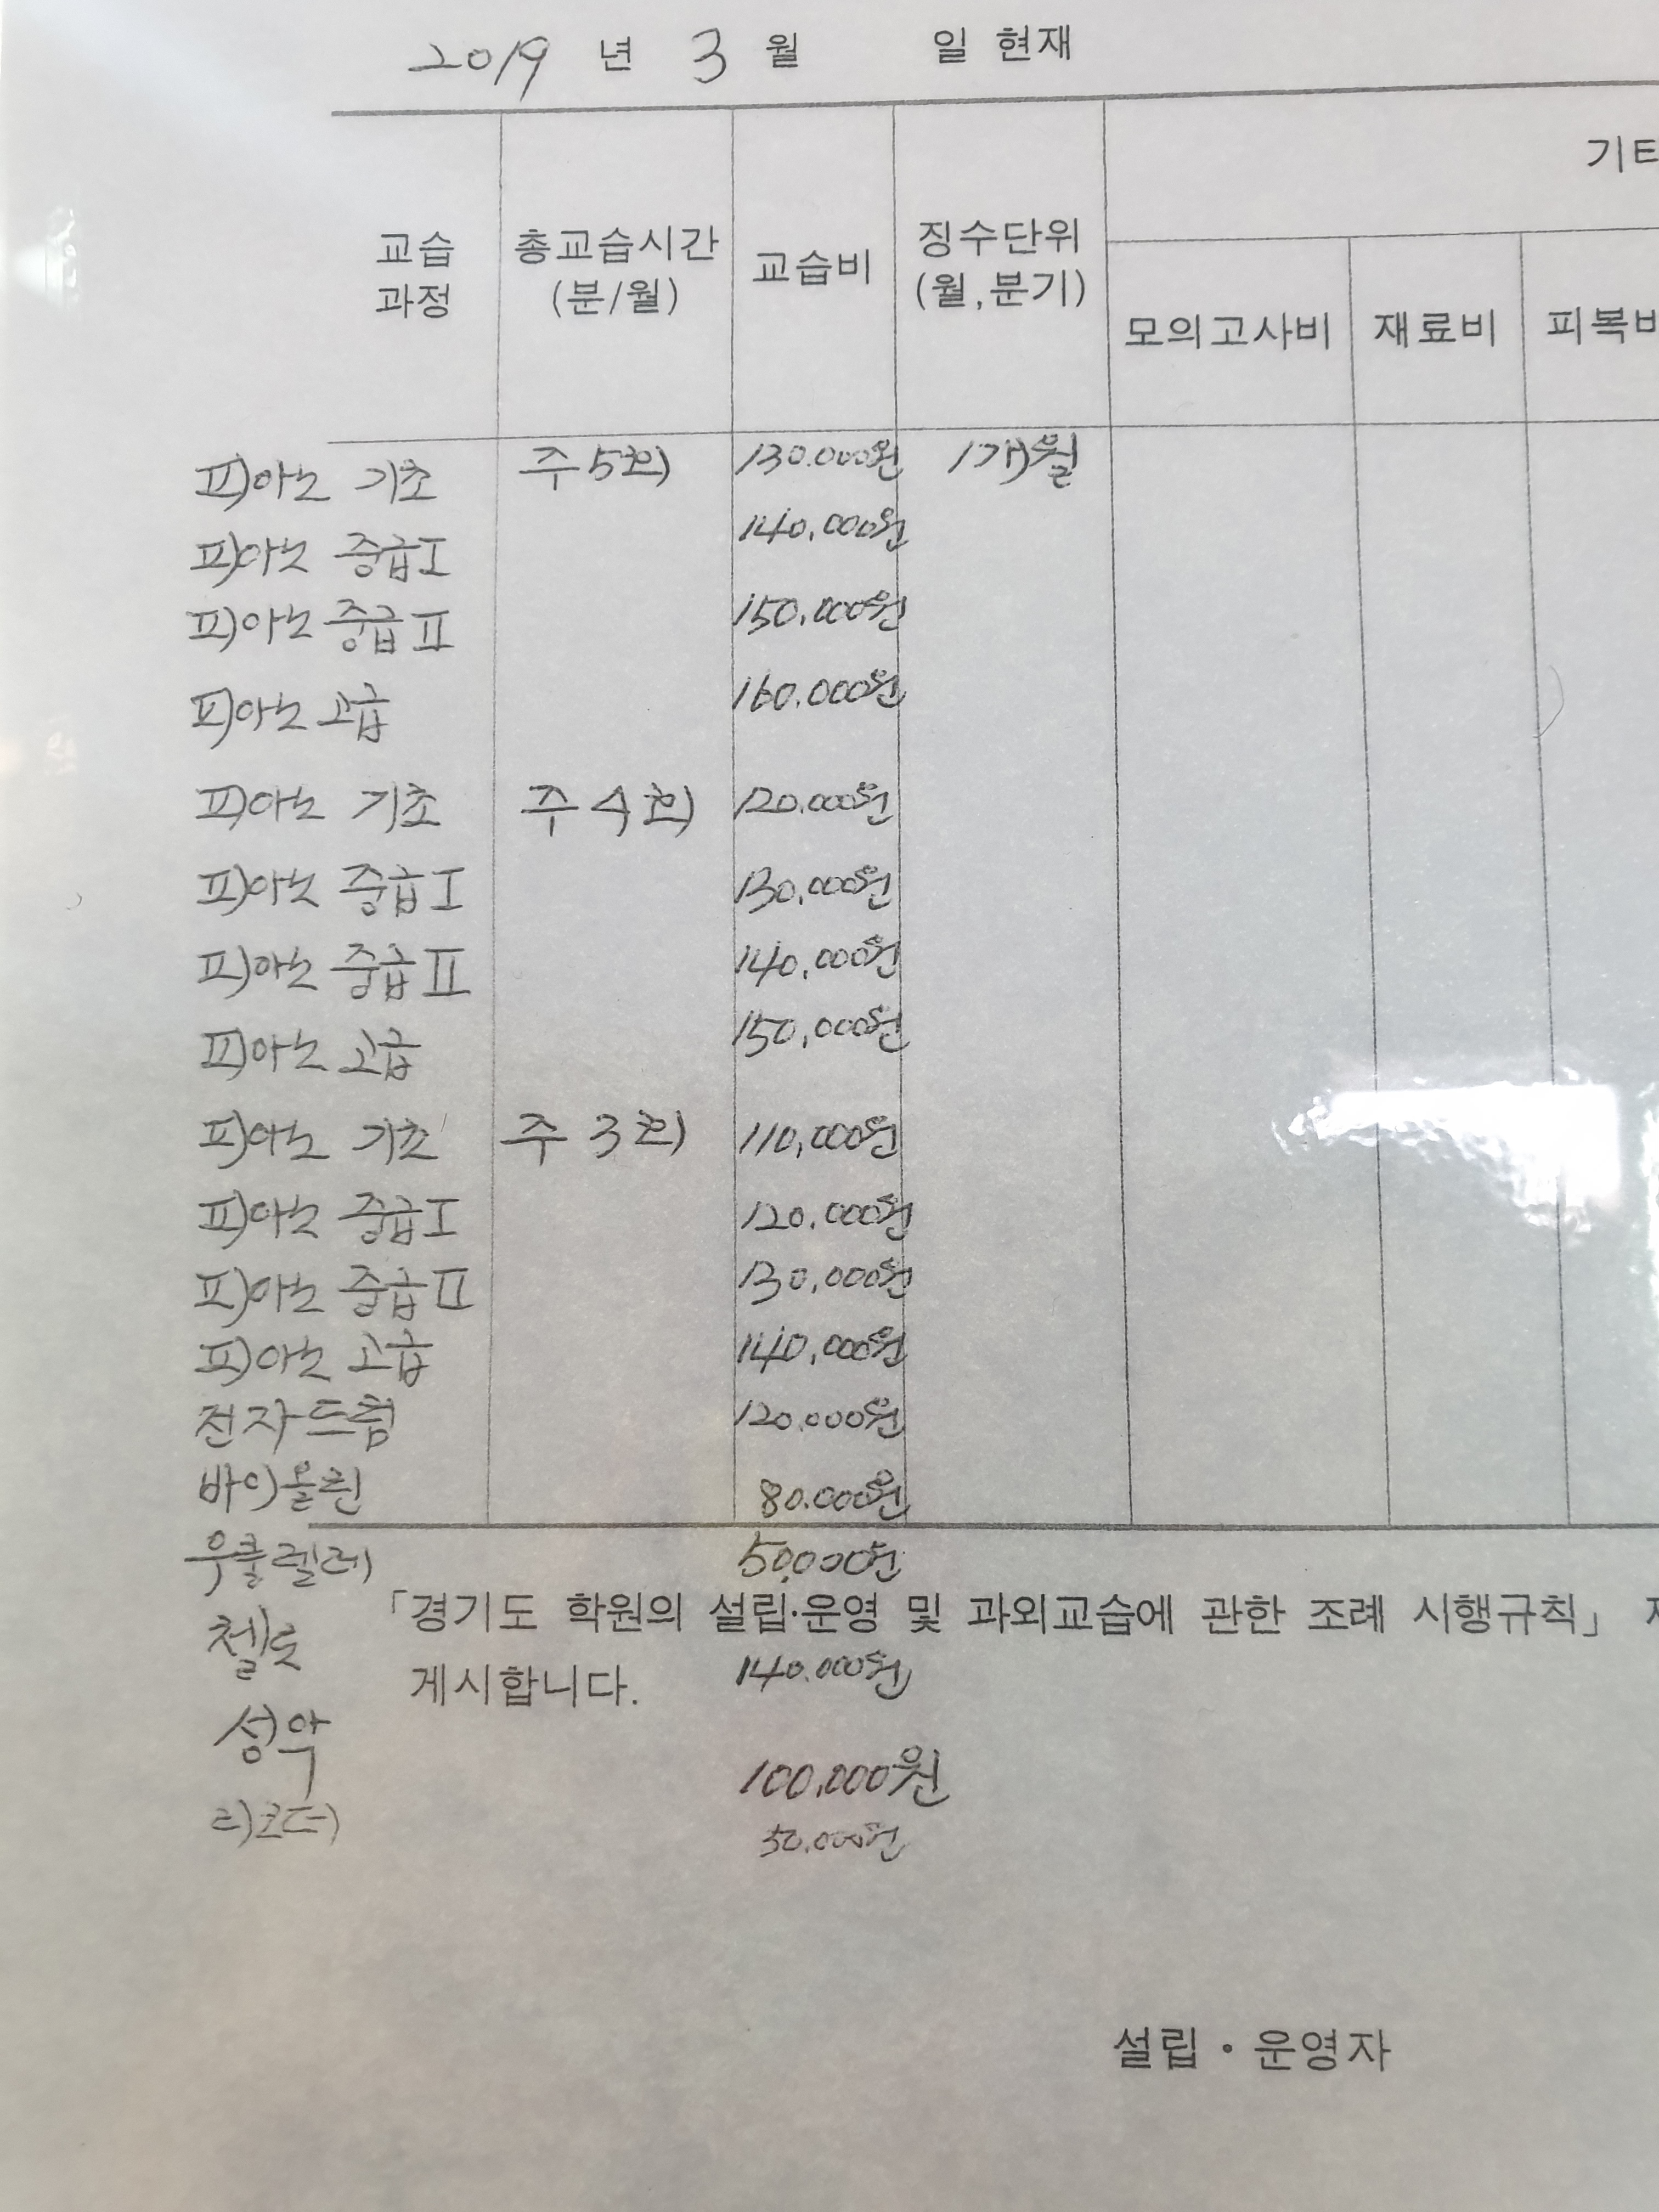 2019 년 3 월 일 현재
기타
교습 과정 총교습시간 (분/월) 교습비 징수단위 (월,분기)
모의고사비 재료비 피복비
피아노 기초 주 5회 130.000원 1개월
피아노 중급Ⅰ 140,000원
피아노 중급Ⅱ 150,000원
피아노 고급 160.000원
피아노 기초 주 4회 120.000원
피아노 중급Ⅰ 130,000원
피아노 중급Ⅱ 140,000원
피아노 고급 150,000원
피아노 기초 주 3회 110,000원
피아노 중급Ⅰ 120,000원
피아노 중급Ⅱ 130,000원
피아노 고급 140,000원
전자드럼 120,000원
바이올린 80.000원
우쿨렐레 50,000원
「경기도 학원의 설립·운영 및 과외교습에 관한 조례 시행규칙」
첼로 140.000원
게시합니다.
성악 100,000원
리코더 50,000원
설립 · 운영자